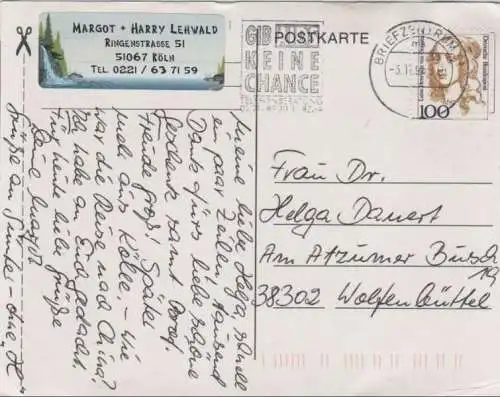 MARGOT + HARRY LEHWALD
RINGENSTRASSE 51
51067 KÖLN
TEL. 0221 / 63 71 59
GIB
KEINE
CHANCE
POSTKARTE
BRIEFZENTRUM
Deutsche Bundespost
100
Meine liebe Helga, schnell
ein paar Zeilen. Tausend
Dank fürs liebe schöne
Geschenk samt
Freude groß! Später
mehr aus Kölle. – Wie
war die Reise nach China?
Ich habe an Euch gedacht.
Für heute liebe Grüße
Deine Margot
Grüße an
Frau Dr.
Helga Dauert
Am Atzumer Busch
19
38302 Wolfenbüttel